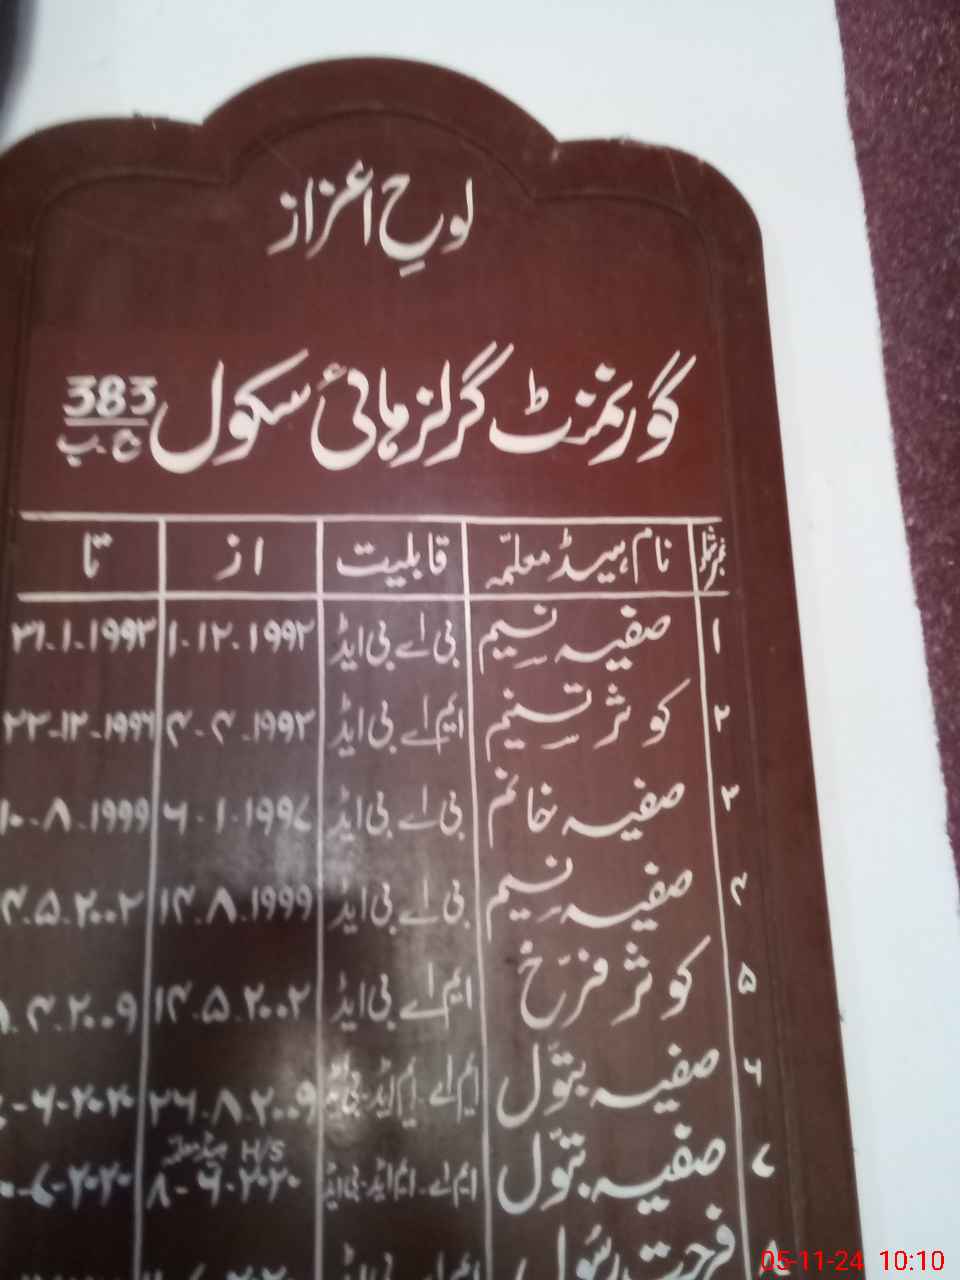 لوحِ اعزاز
گورنمنٹ گرلز ہائی سکول 383 ج ب
نمبر شمار نام ہیڈ معلمّہ قابلیت از تا
۱ صفیہ نسیم بی اے بی ایڈ ۱-۱۲-۱۹۹۲ ۳۱-۱-۱۹۹۳
۲ کوثر تسنیم ایم اے بی ایڈ ۴-۴-۱۹۹۳ ۲۳-۱۲-۱۹۹۶
۳ صفیہ خانم بی اے بی ایڈ ۶-۱-۱۹۹۷ ۱۰-۸-۱۹۹۹
۴ صفیہ نسیم بی اے بی ایڈ ۱۴-۸-۱۹۹۹ ۴-۵-۲۰۰۲
۵ کوثر فرّخ ایم اے بی ایڈ ۱۴-۵-۲۰۰۲ ۴-۲۰۰۹
۶ صفیہ بتول ایم اے ایم ایڈ بی ایڈ ۲۶-۸-۲۰۰۹ ۶-۲۰۲۰
H/S ہیڈ معلمہ
۷ صفیہ بتول ایم اے ایم ایڈ بی ایڈ ۸-۶-۲۰۲۰ ۷-۲۰۲۰
۸ فرحت رسول
05-11-24 10:10